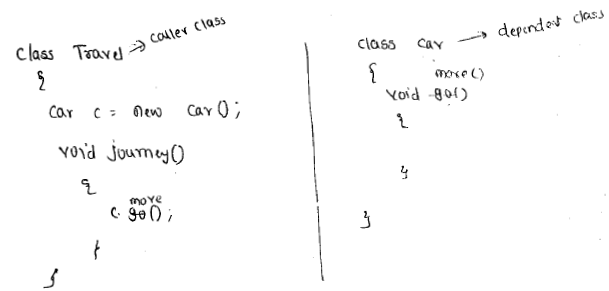 class Travel → caller class
{
car c = new car();
void journey()
{
move
c. go();
}
}
class car → dependent class
{
move()
void go()
{
}
}